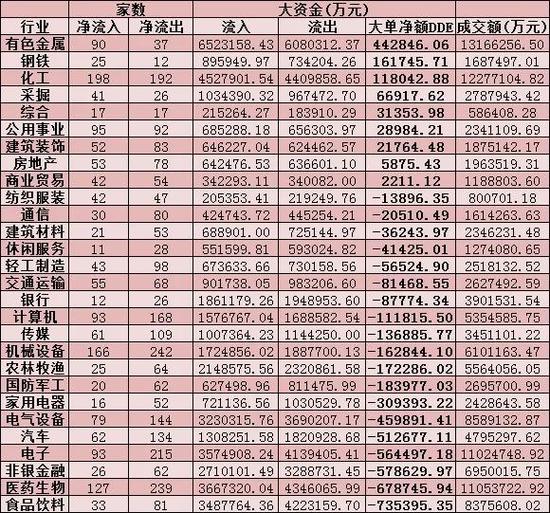 家数 大资金(万元)
行业 净流入 净流出 流入 流出 大单净额DDE 成交额(万元)
有色金属 90 37 6523158.43 6080312.37 442846.06 13166256.50
钢铁 25 12 895949.97 734204.26 161745.71 1687497.01
化工 198 192 4527901.54 4409858.65 118042.88 12277104.82
采掘 41 26 1034390.32 967472.70 66917.62 2787943.42
综合 17 17 215264.27 183910.29 31353.98 586408.28
公用事业 95 92 685288.18 656303.97 28984.21 2341109.69
建筑装饰 52 83 646227.04 624462.57 21764.48 1875142.17
房地产 53 78 642476.53 636601.10 5875.43 1963519.31
商业贸易 42 54 342293.11 340082.00 2211.12 1188803.60
纺织服装 42 47 205353.41 219249.76 -13896.35 800701.18
通信 30 80 424743.72 445254.21 -20510.49 1614263.63
建筑材料 21 53 688901.00 725144.97 -36243.97 2346231.48
休闲服务 11 28 551599.81 593024.82 -41425.01 1274080.65
轻工制造 43 98 673633.66 730158.56 -56524.90 2518132.52
交通运输 55 68 901738.05 983206.60 -81468.55 2627492.59
银行 12 26 1861179.26 1948953.60 -87774.34 3901531.54
计算机 93 168 1576767.04 1688582.54 -111815.50 5354585.75
传媒 61 109 1007364.23 1144250.00 -136885.77 3451101.22
机械设备 166 242 1724856.02 1887700.13 -162844.10 6101163.47
农林牧渔 25 64 2148575.56 2320861.58 -172286.02 5564056.05
国防军工 20 62 627498.96 811475.99 -183977.03 2695700.99
家用电器 16 52 721136.56 1030529.78 -309393.22 2428643.58
电气设备 79 144 3230315.76 3690207.17 -459891.41 8589132.87
汽车 62 134 1308251.58 1820928.68 -512677.11 4795297.62
电子 93 215 3574908.24 4139405.41 -564497.18 11024748.92
非银金融 26 62 2710101.49 3288731.45 -578629.97 6950015.75
医药生物 127 239 3667320.04 4346065.99 -678745.94 11053722.92
食品饮料 33 81 3487764.36 4223159.70 -735395.35 8375608.02